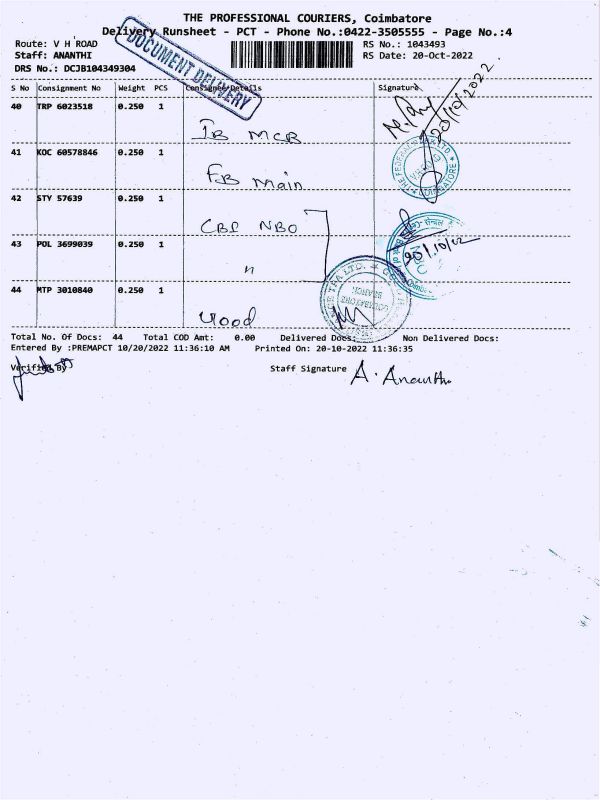 THE PROFESSIONAL COURIERS, Coimbatore
Delivery Runsheet - PCT - Phone No.:0422-3505555 - Page No.:4
Route: V H ROAD
RS No.: 1043493
Staff: ANANTHI
RS Date: 20-Oct-2022
DRS No.: DCJB104349304
DOCUMENT DELIVERY
S No Consignment No Weight PCS Consignee Details Signature
20/10/2022
40 TRP 6023518 0.250 1
IB MCB
41 KOC 60578846 0.250 1
THE FEDERAL
COIMBATORE
FB Main
42 STY 57639 0.250 1
CBI NBO
43 POL 3699039 0.250 1
20/10/22
"
44 MTP 3010840 0.250 1
TPA LTD.
COIMBATORE
BRANCH
Total No. Of Docs: 44 Total COD Amt: 0.00 Delivered Docs: Non Delivered Docs:
Entered By :PREMAPCT 10/20/2022 11:36:10 AM Printed On: 20-10-2022 11:36:35
Verified By
Staff Signature A. Ananthi